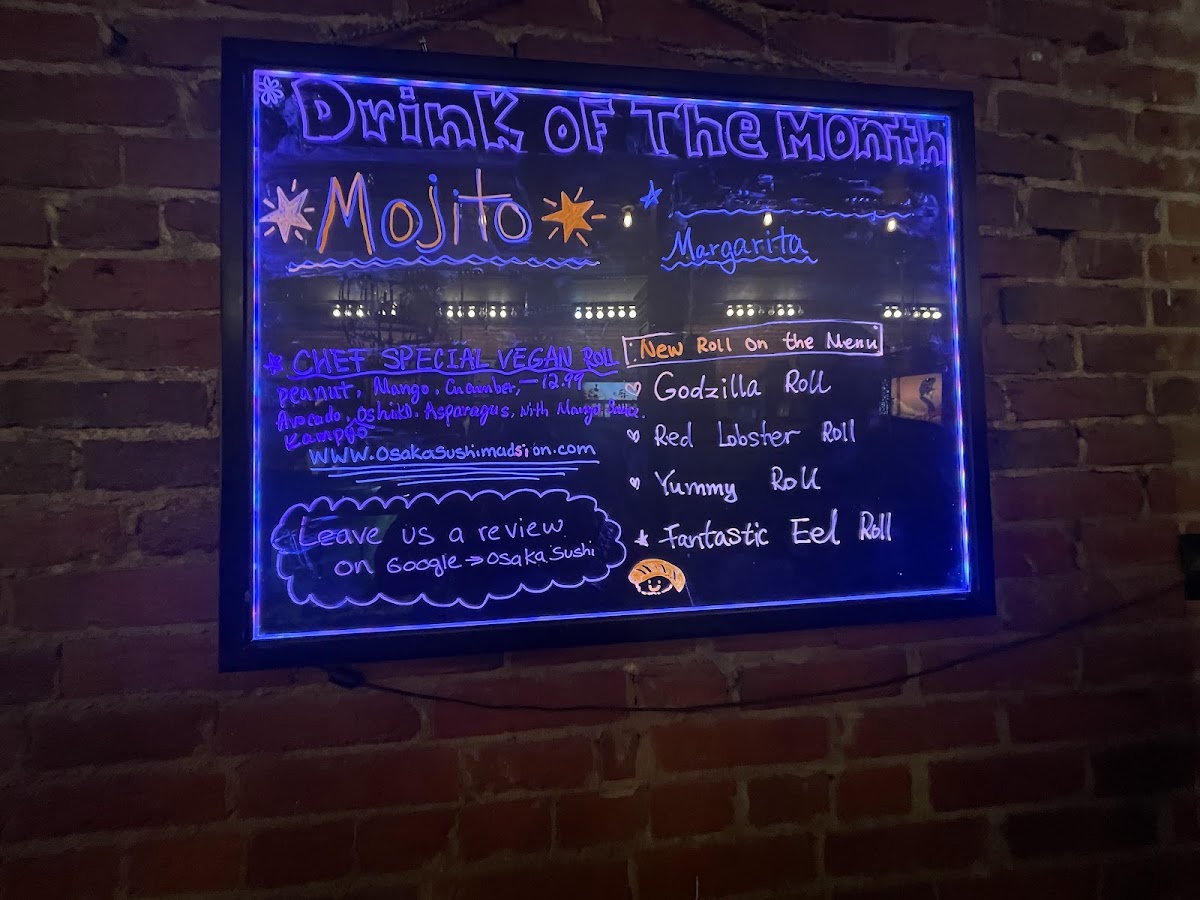 Drink Of The Month
Mojito
Margarita
CHEF SPECIAL VEGAN Roll
Peanut, Mango, Cucumber, - 12.99
Avocado, Oshinko, Asparagus, With Mango
Kampyo
WWW.OsakaSushimadsion.com
Leave us a review
on Google → Osaka Sushi
New Roll on the Menu
Godzilla Roll
Red Lobster Roll
Yummy Roll
Fantastic Eel Roll